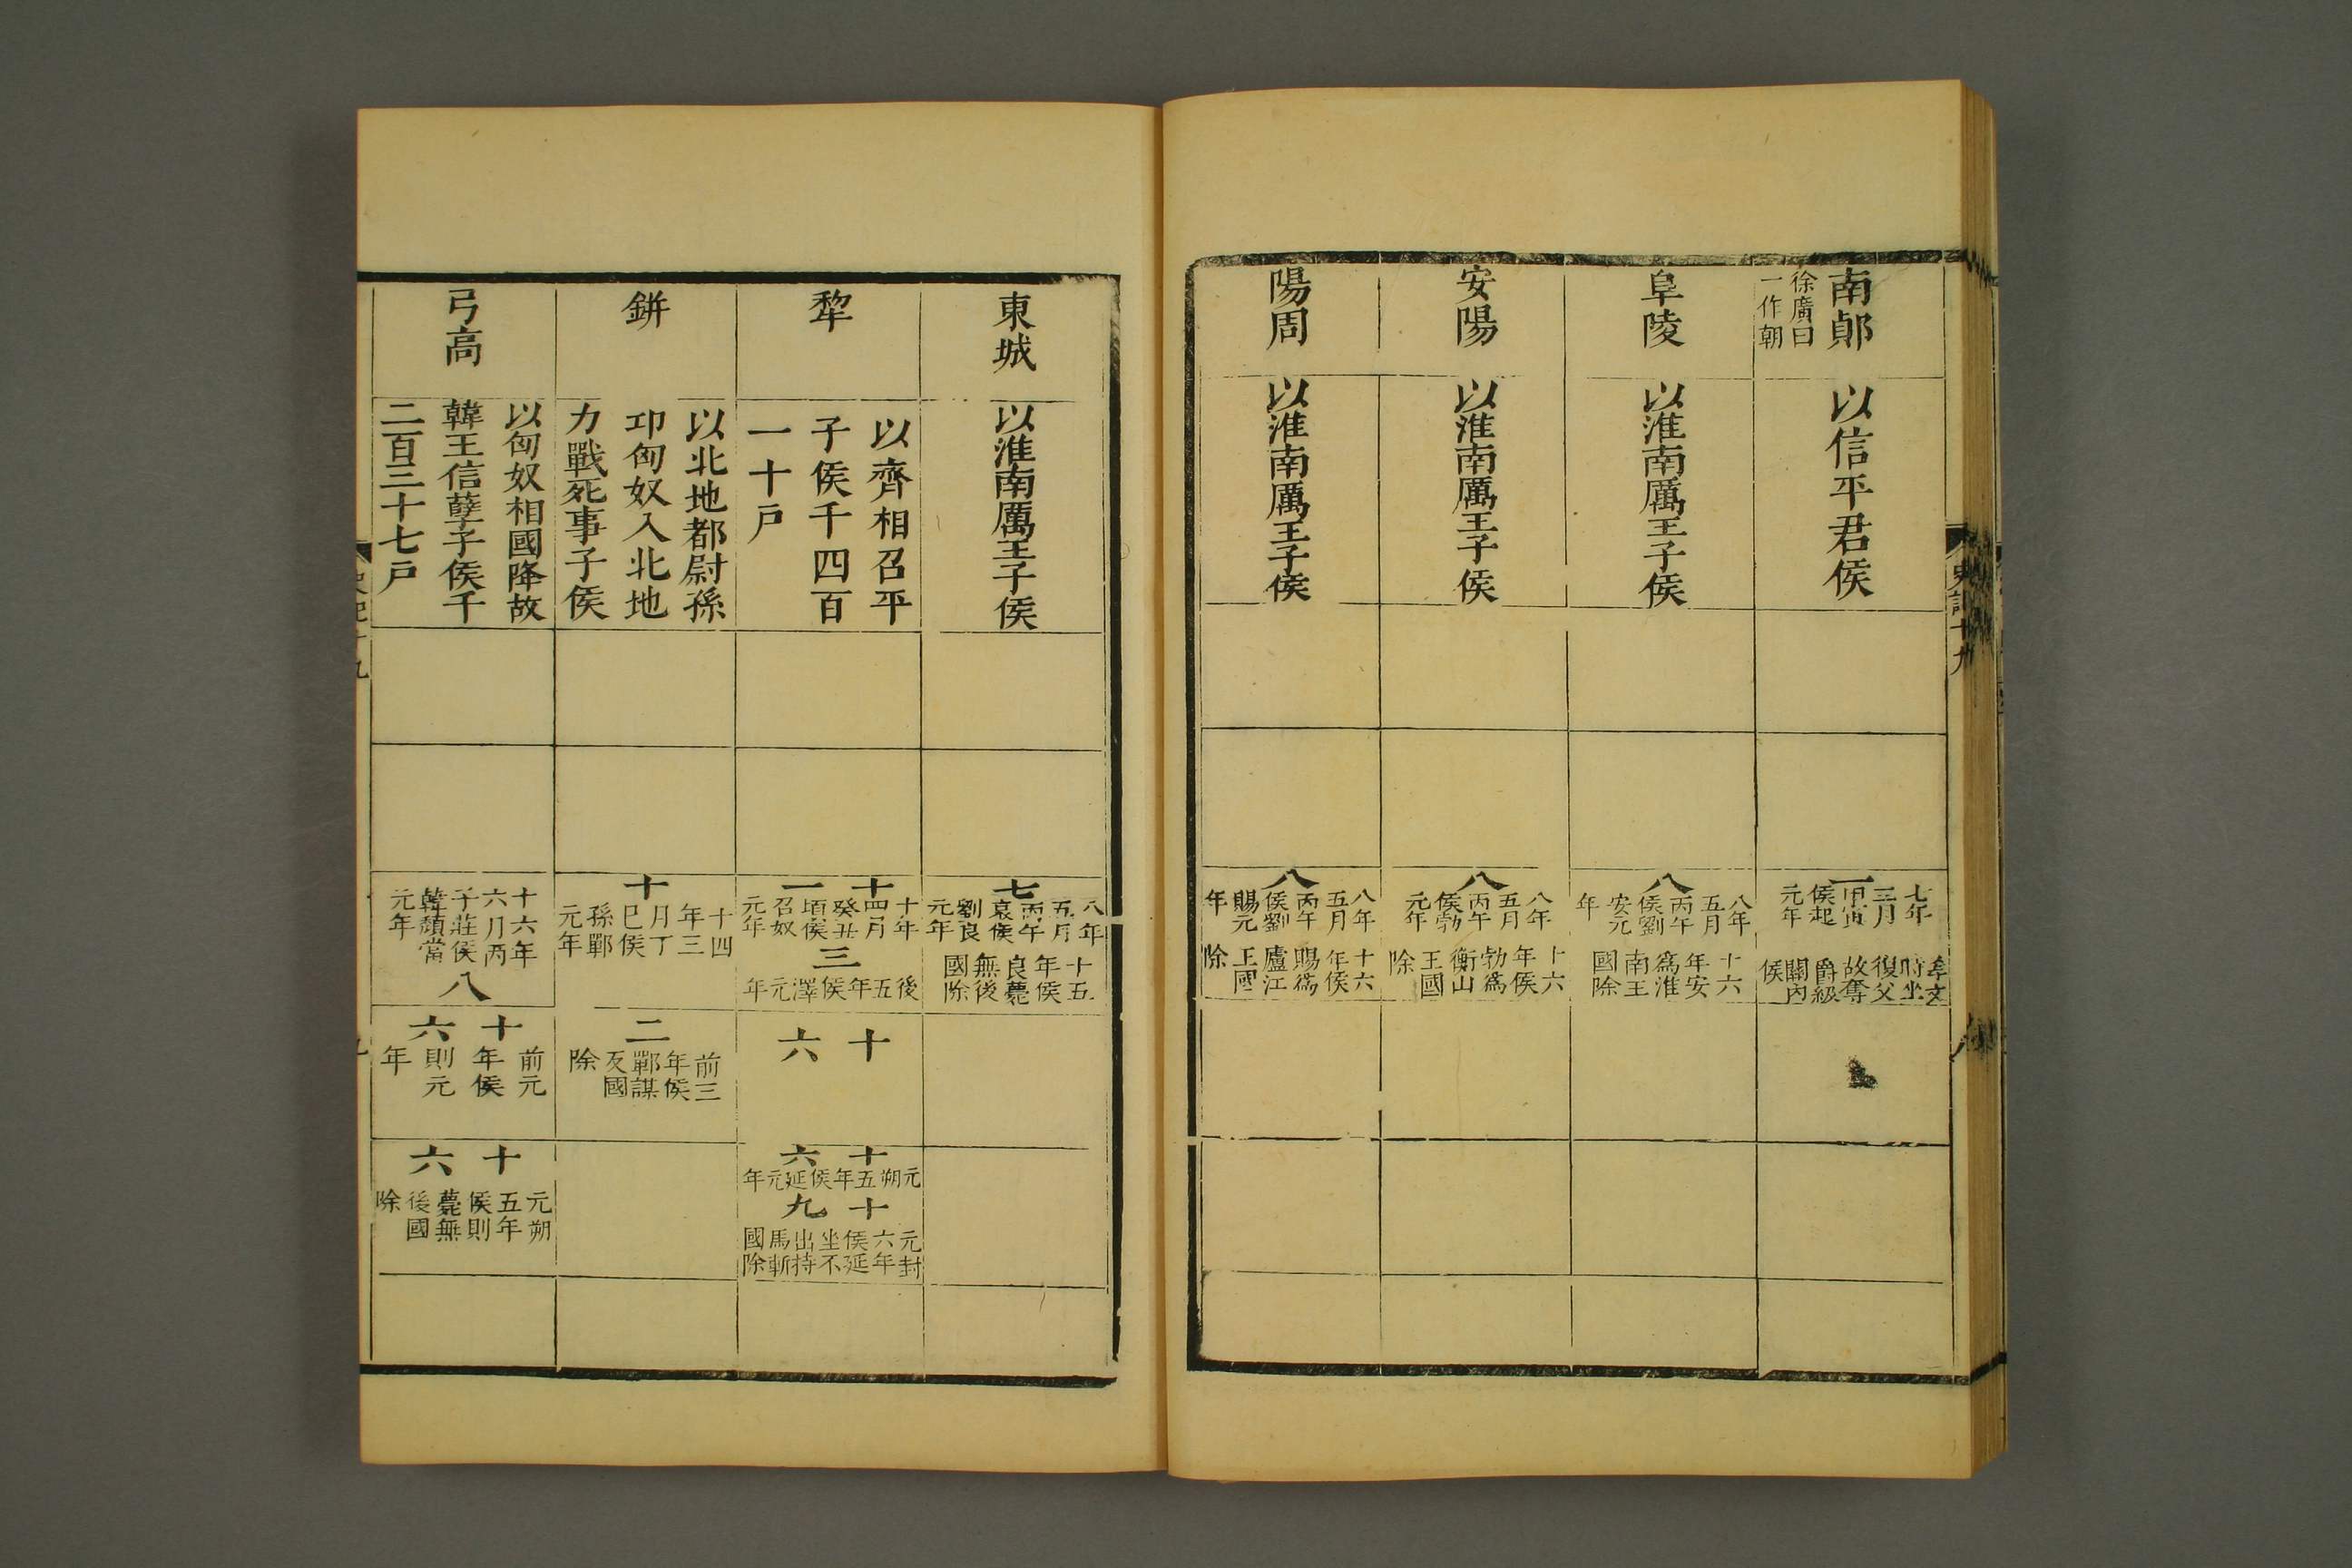 南鄖
徐廣曰
一作朝
以信平君侯
一
七年
三月
甲寅
侯起
元年
孝文
時坐
復父
故奪
爵級
關內
侯
阜陵
以淮南厲王子侯
八
八年
五月
丙午
侯劉
安元
年
十六
年安
爲淮
南王
國除
安陽
以淮南厲王子侯
八
八年
五月
丙午
侯勃
元年
十六
年侯
勃爲
衡山
王國
除
陽周
以淮南厲王子侯
八
八年
五月
丙午
侯劉
賜元
年
十六
年侯
賜爲
廬江
王國
除
史記十九
八
東城
以淮南厲王子侯
七
八年
五月
丙午
哀侯
劉良
元年
十五
年侯
良薨
無後
國除
犂
以齊相召平
子侯千四百
一十戶
十一
十年
四月
癸丑
頃侯
召奴
元年
三
後五年侯澤元年
十六
十六
元朔五年侯延元年
十九
元封
六年
侯延
坐不
出持
馬斬
國除
缾
以北地都尉孫
卬匈奴入北地
力戰死事子侯
十
十四
年三
月丁
巳侯
孫鄲
元年
二
前三
年侯
鄲謀
反國
除
弓高
以匈奴相國降故
韓王信孽子侯千
二百三十七戶
十六年
六月丙
子莊侯
韓頹當
元年
八
十六
前元
年侯
則元
年
十六
元朔
五年
侯則
薨無
後國
除
史記十九